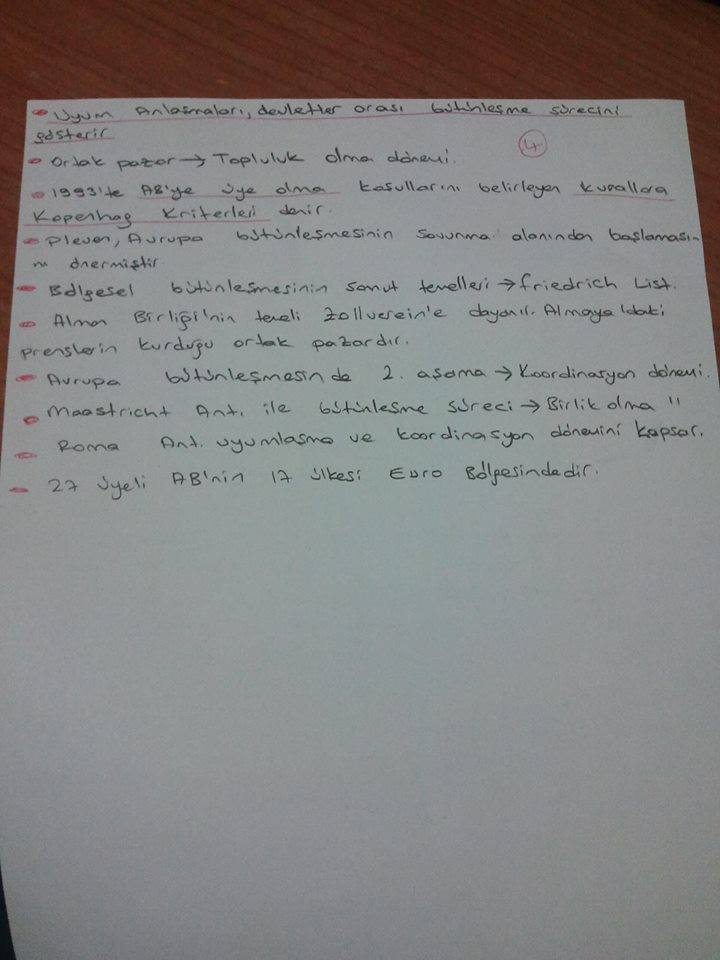 Uyum Anlaşmaları, devletler arası bütünleşme sürecini
gösterir
4
Ortak pazar → Topluluk olma dönemi.
1993'te AB'ye üye olma koşullarını belirleyen kurallara
Kopenhag Kriterleri denir.
Pleven, Avrupa bütünleşmesinin savunma alanından başlaması-
nı önermiştir
Bölgesel bütünleşmesinin somut temelleri → friedrich List.
Alman Birliği'nin temeli Zollverein'e dayanır. Almaya'daki
prenslerin kurduğu ortak pazardır.
Avrupa bütünleşmesinde 2. aşama → Koordinasyon dönemi.
Maastricht Ant. ile bütünleşme süreci → Birlik olma "
Roma Ant. uyumlaşma ve koordinasyon dönemini kapsar.
27 üyeli AB'nin 17 ülkesi Euro Bölgesindedir.